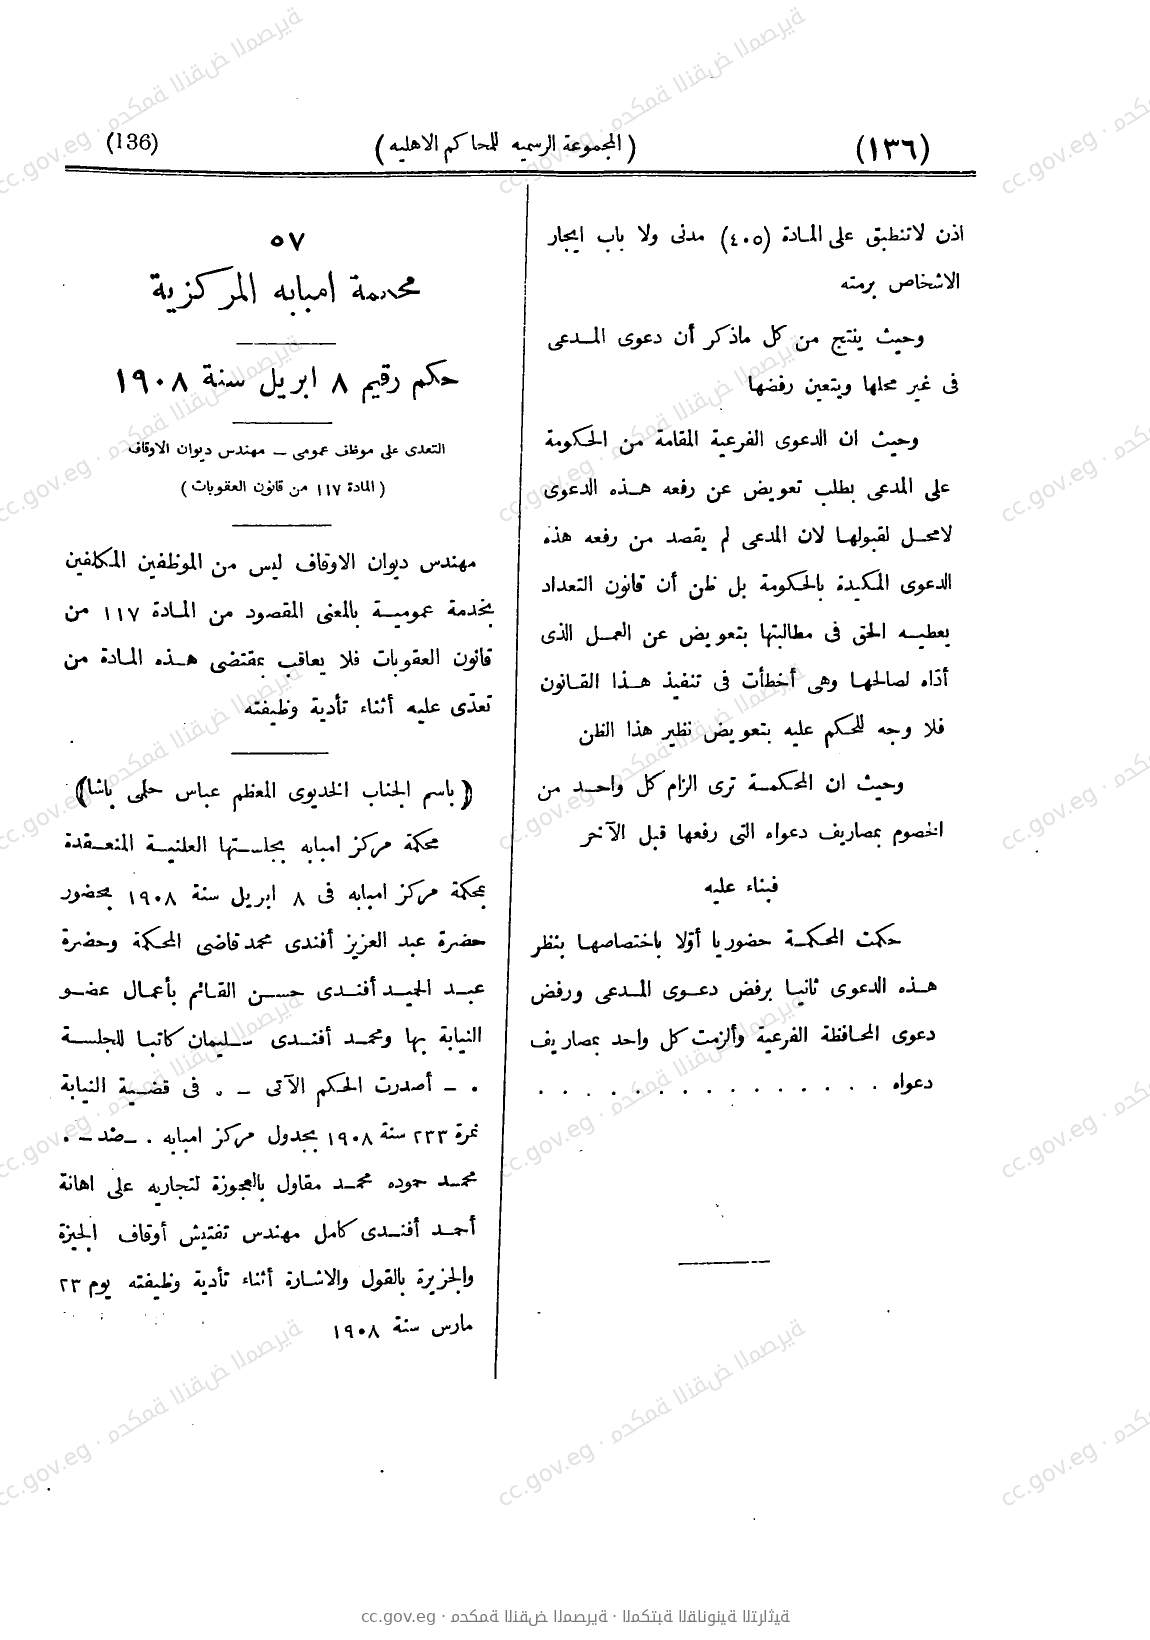 (١٣٦)
( المجموعة الرسميه للمحاكم الاهليه )
(136)
اذن لاتنطبق على المادة (٤٠٥) مدنى ولا باب ايجار
الاشخاص برمته
وحيث ينتج من كل ماذكر أن دعوى المدعى
فى غير محلها ويتعين رفضها
وحيث ان الدعوى الفرعية المقامة من الحكومة
على المدعى بطلب تعويض عن رفعه هذه الدعوى
لامحل لقبولها لان المدعى لم يقصد من رفعه هذه
الدعوى المكيدة بالحكومة بل ظن أن قانون التعداد
يعطيه الحق فى مطالبتها بتعويض عن العمل الذى
أدّاه لصالحها وهى أخطأت فى تنفيذ هذا القانون
فلا وجه للحكم عليه بتعويض نظير هذا الظن
وحيث ان المحكمة ترى الزام كل واحد من
الخصوم بمصاريف دعواه التى رفعها قبل الآخر
فبناء عليه
حكمت المحكمة حضوريا أوّلا باختصاصها بنظر
هذه الدعوى ثانيا برفض دعوى المدعى ورفض
دعوى المحافظة الفرعية وألزمت كل واحد بمصاريف
دعواه . . . . . . . . . . . . . . .
٥٧
محكمة امبابه المركزية
حكم رقيم ٨ ابريل سنة ١٩٠٨
التعدى على موظف عمومى — مهندس ديوان الاوقاف
( المادة ١١٧ من قانون العقوبات )
مهندس ديوان الاوقاف ليس من الموظفين المكلفين
بخدمة عمومية بالمعنى المقصود من المادة ١١٧ من
قانون العقوبات فلا يعاقب بمقتضى هذه المادة من
تعدّى عليه أثناء تأدية وظيفته
(باسم الجناب الخديوى المعظم عباس حلمى باشا)
محكمة مركز امبابه بجلستها العلنية المنعقدة
بمحكمة مركز امبابه فى ٨ ابريل سنة ١٩٠٨ بحضور
حضرة عبد العزيز أفندى محمد قاضى المحكمة وحضرة
عبد الحميد أفندى حسن القائم بأعمال عضو
النيابة بها ومحمد أفندى سليمان كاتبا للجلسة
. — أصدرت الحكم الآتى — . فى قضية النيابة
نمرة ٢٣٣ سنة ١٩٠٨ بجدول مركز امبابه . — ضد — .
محمد حموده محمد مقاول بالعجوزة لتجاريه على اهانة
أحمد أفندى كامل مهندس تفتيش أوقاف الجيزة
والجزيرة بالقول والاشارة أثناء تأدية وظيفته يوم ٢٣
مارس سنة ١٩٠٨
cc.gov.eg · محكمة النقض المصرية · المكتبة القانونية التراثية